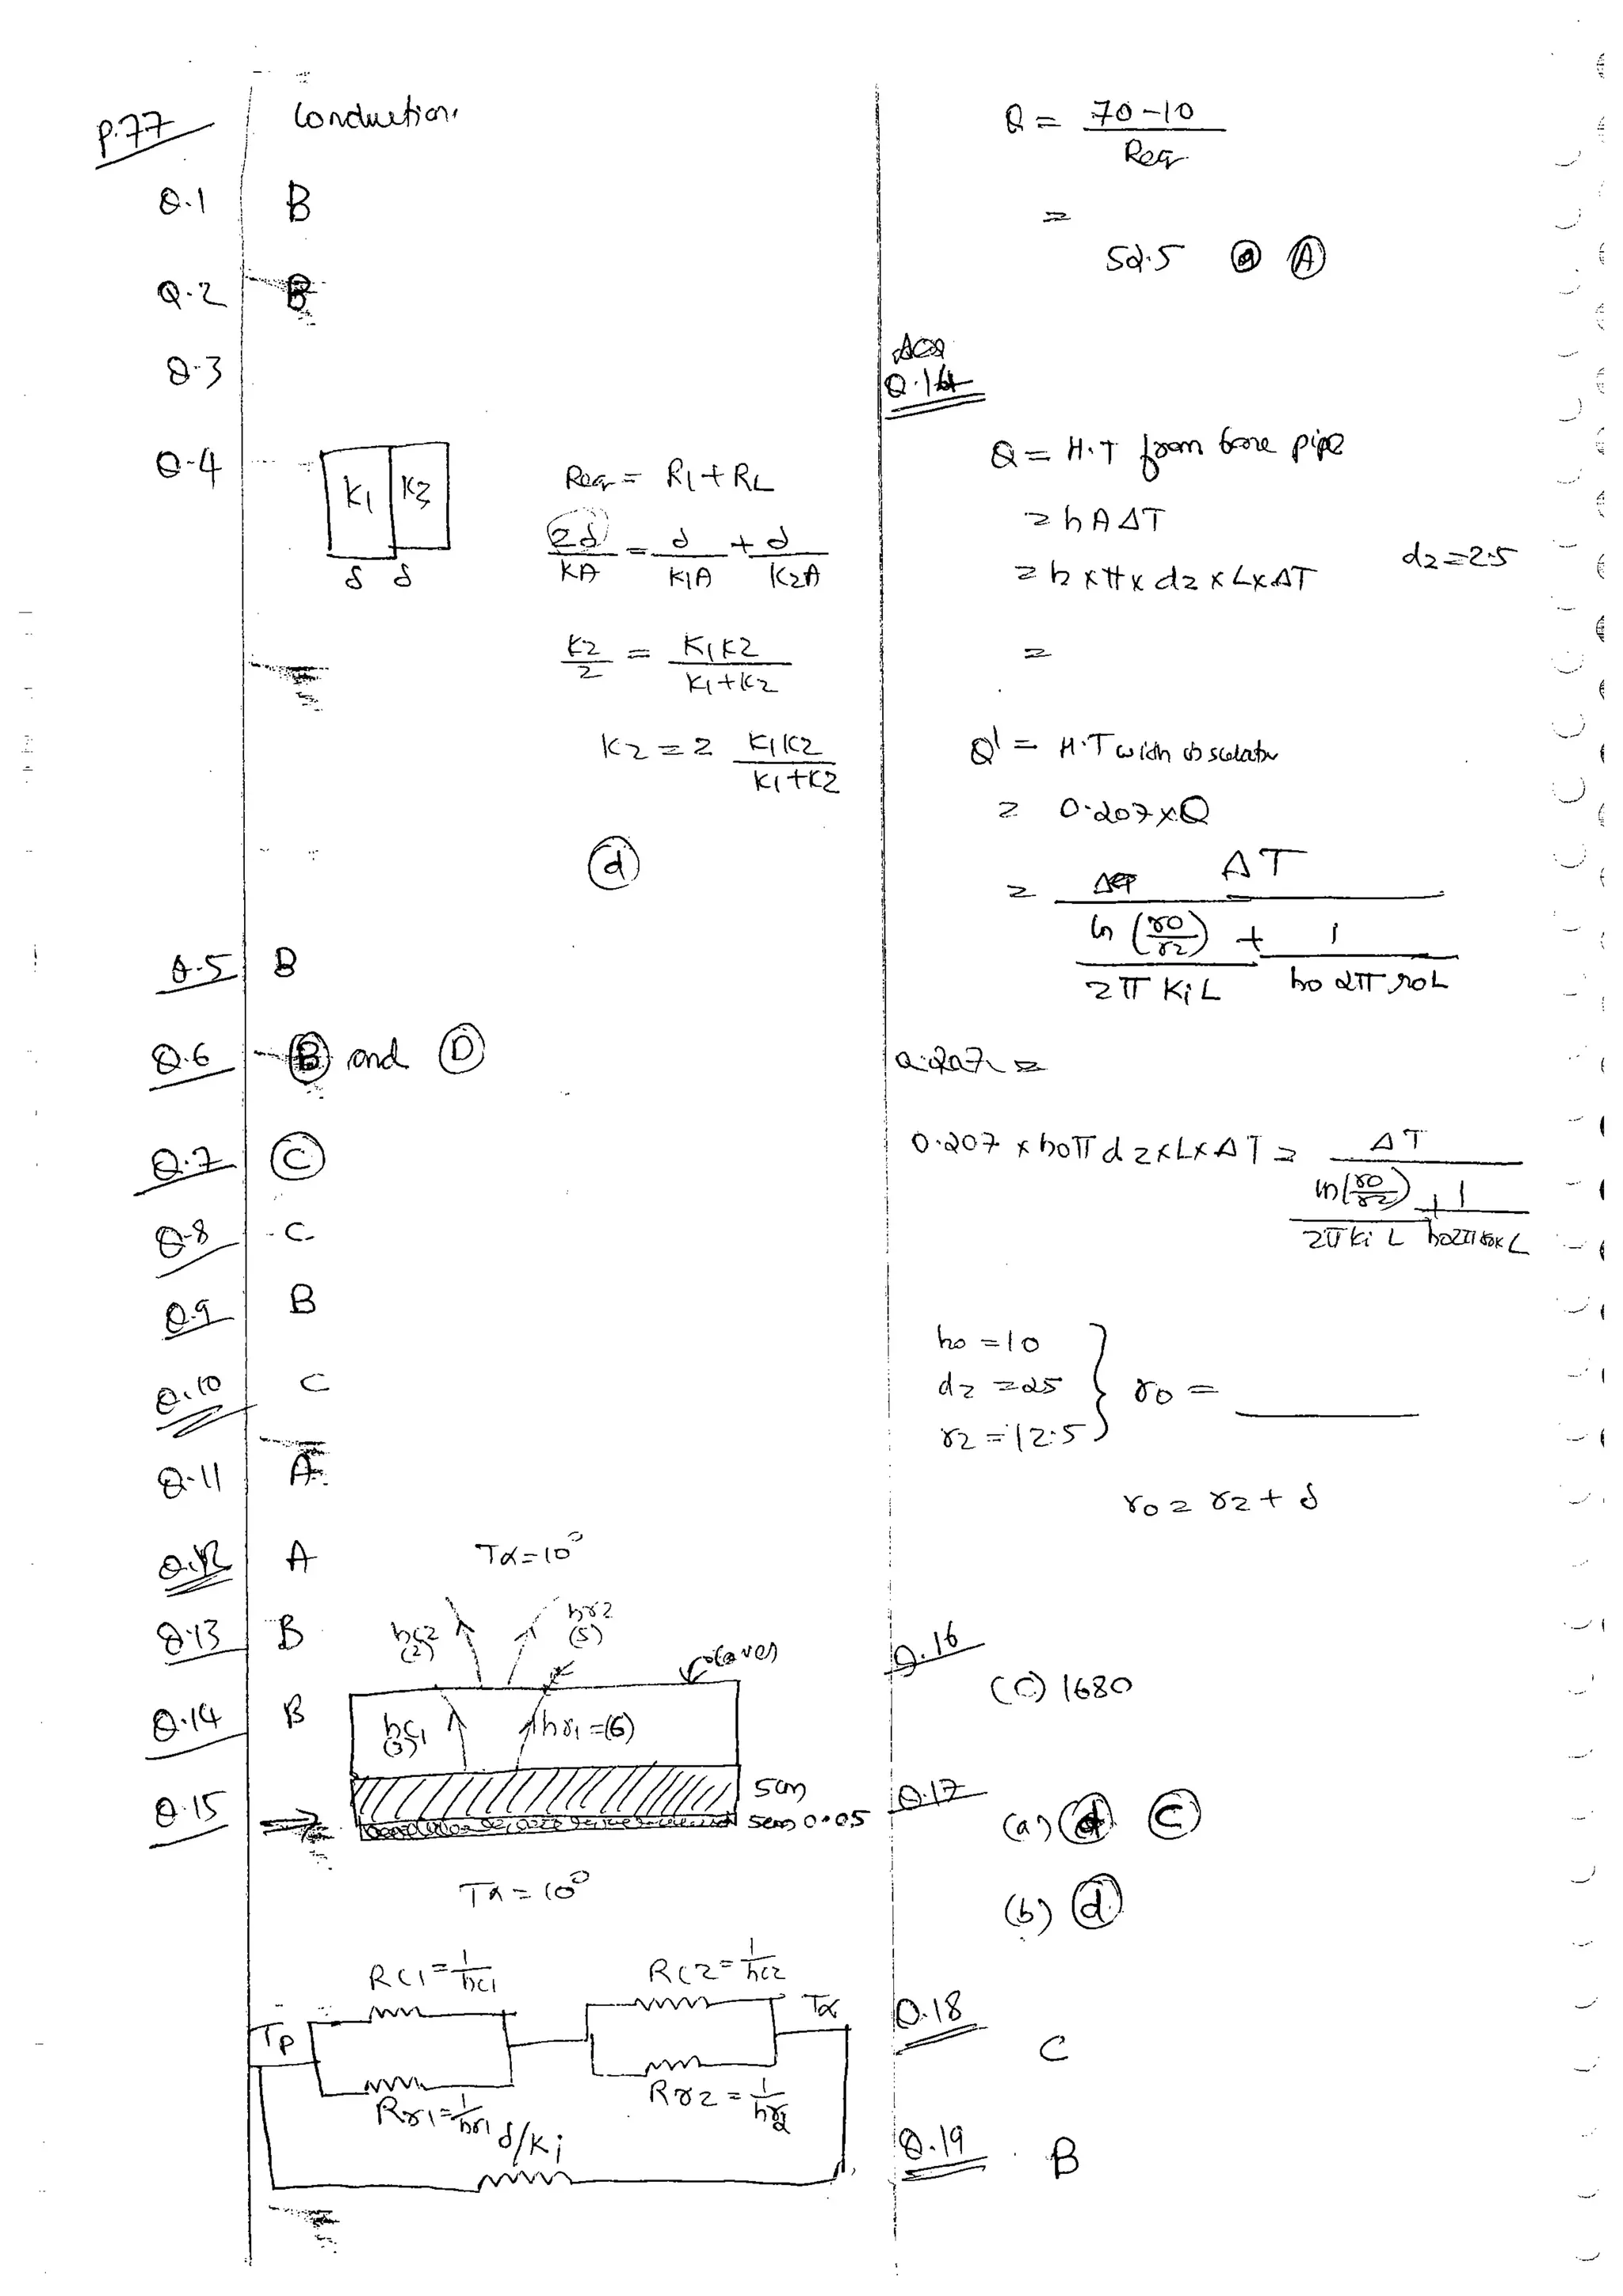 P.77 Conduction
Q.1 B
Q.2 B
Q.3
Q.4 K1 K2
δ δ
Req = R1 + R2
2δ/KA = δ/K1A + δ/K2A
K2/2 = K1K2/K1+K2
K2 = 2 K1K2/K1+K2
(d)
Q.5 B
Q.6 (B) and (D)
Q.7 (C)
Q.8 C
Q.9 B
Q.10 C
Q.11 A
Q.12 A
Q.13 B
Q.14 B
Q.15
Tα = 10°
hc2 (2) hr2 (5)
hc1 (3) hr1 = (6)
5cm
0.05
Tα = 10°
Rc1 = 1/hc1 Rc2 = 1/hc2
Tp Tα
Rr1 = 1/hr1 Rr2 = 1/hr2
δ/Ki
Q = 70-10/Req
=
52.5 (A)
Q.14
Q = H.T from bare pipe
= h A ΔT
= h × π × d2 × L × ΔT d2 = 2.5
=
Q' = H.T with
= 0.207 × Q
= ΔT / ln(r0/r2)/2π Ki L + 1/h0 2π r0 L
0.207 =
0.207 × h0 π d2 × L × ΔT = ΔT / ln(r0/r2)/2π Ki L + 1/h0 2π r0 × L
h0 = 10
d2 = 25 } r0 =
r2 = 12.5
r0 = r2 + δ
Q.16
(C) 1680
Q.17
(a) (C)
(b) (d)
Q.18
C
Q.19 B